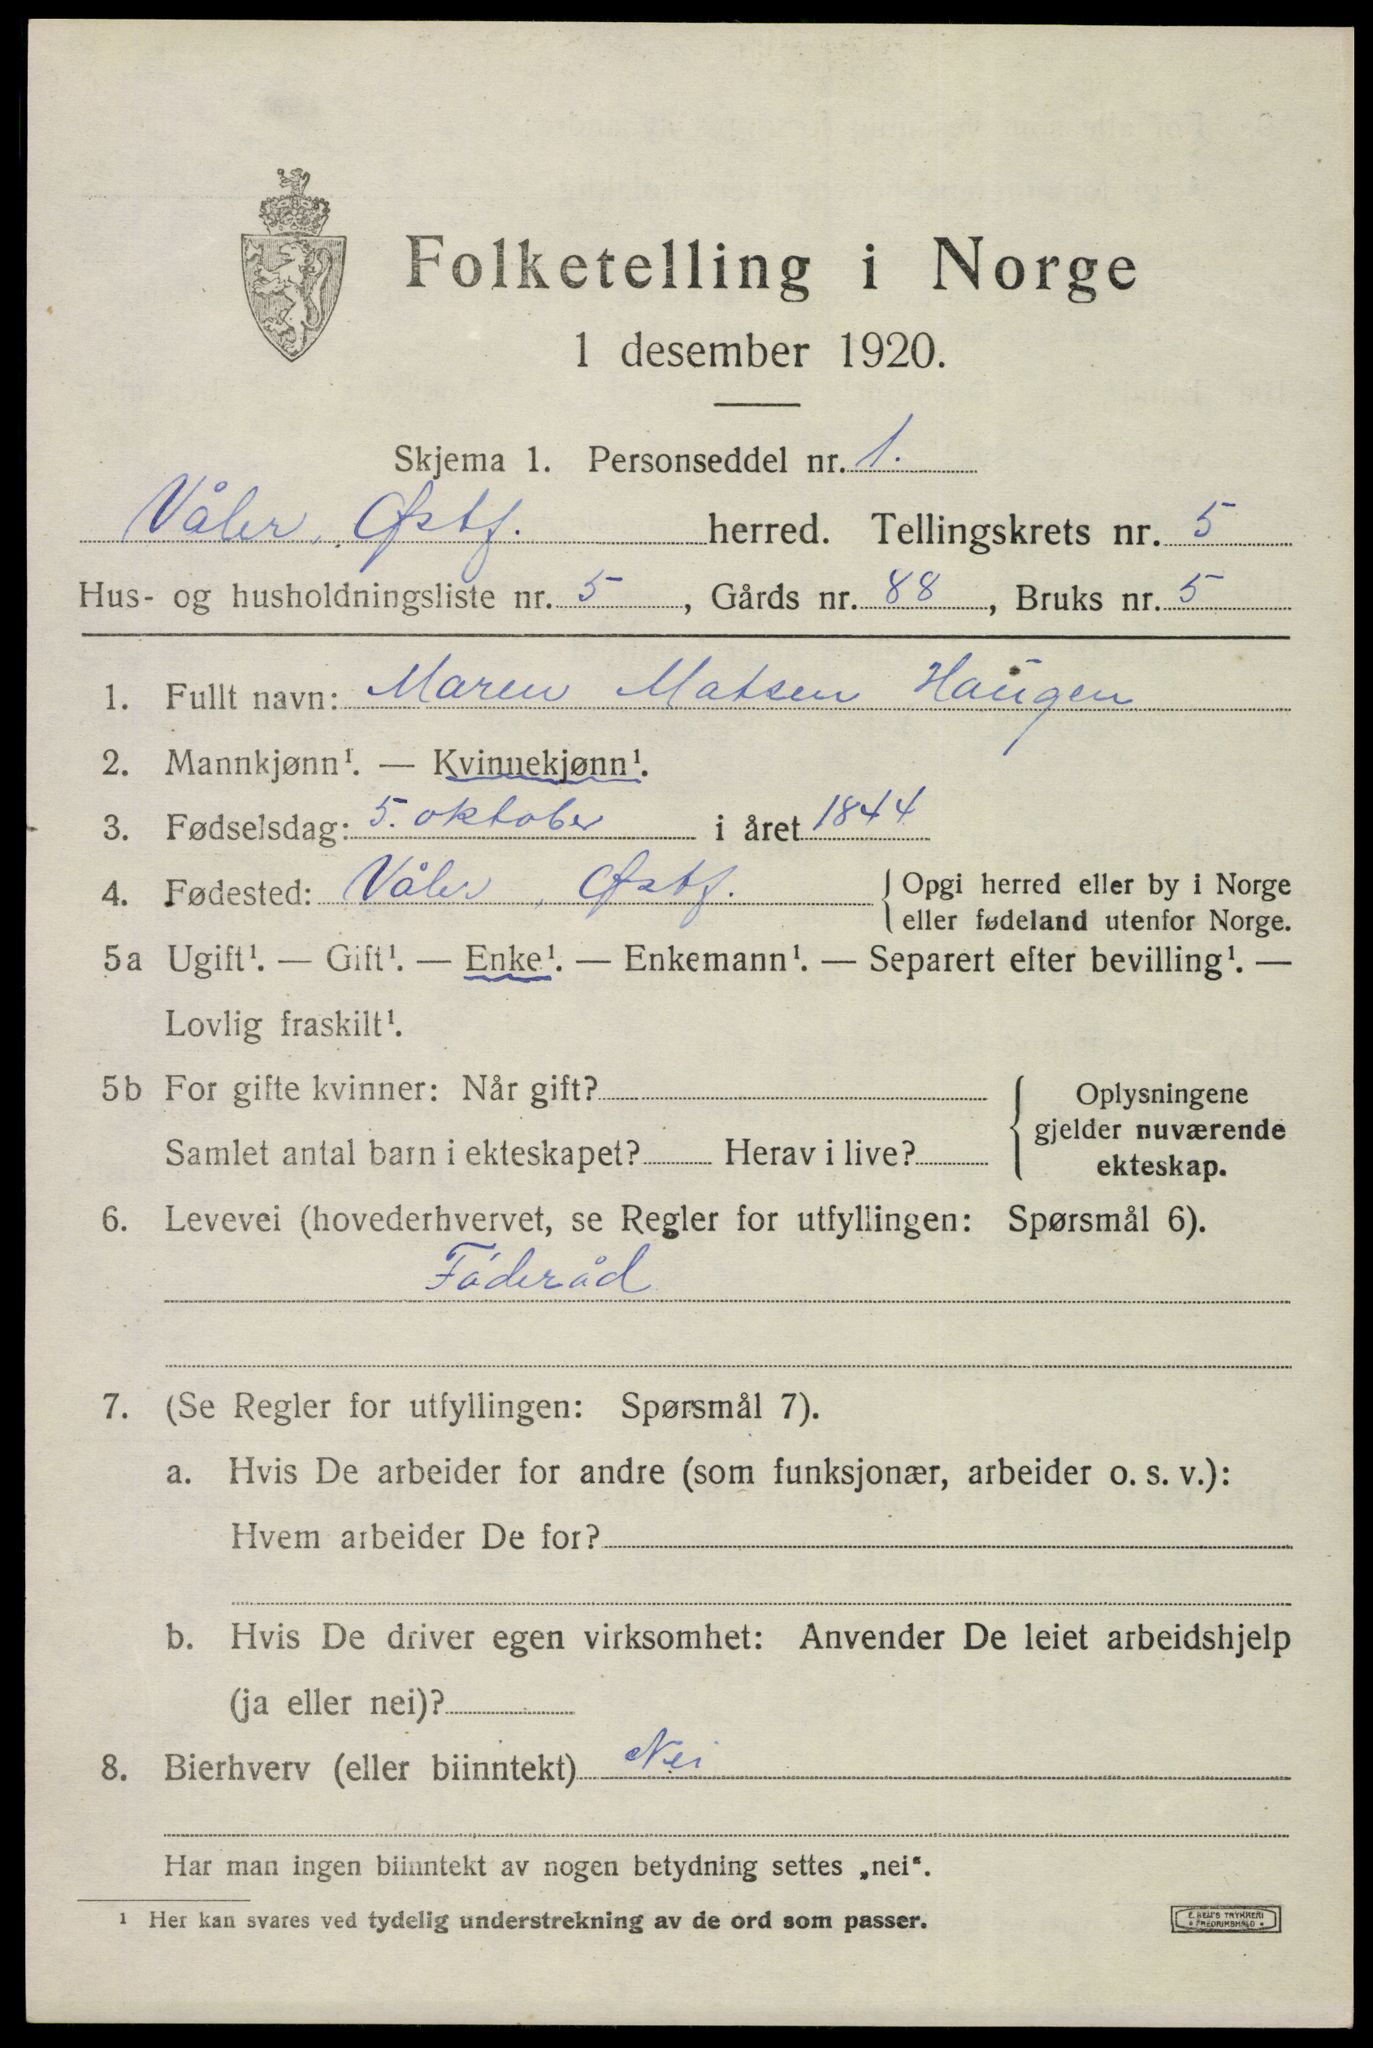 Folketelling i Norge
1 desember 1920.
Skjema 1. Personseddel nr. 1.
Våler, Østf. herred. Tellingskrets nr. 5
Hus- og husholdningsliste nr. 5, Gårds nr. 88, Bruks nr. 5
1. Fullt navn: Maren Matsen Haugen
2. Mannkjønn¹. — Kvinnekjønn¹.
3. Fødselsdag: 5. oktober i året 1844
4. Fødested: Våler, Østf. { Opgi herred eller by i Norge
eller fødeland utenfor Norge.
5a Ugift¹. — Gift¹. — Enke¹. — Enkemann¹. — Separert efter bevilling¹. —
Lovlig fraskilt¹.
5b For gifte kvinner: Når gift?
Samlet antal barn i ekteskapet? Herav i live?
Oplysningene
gjelder nuværende
ekteskap.
6. Levevei (hovederhvervet, se Regler for utfyllingen: Spørsmål 6).
Föderåd
7. (Se Regler for utfyllingen: Spørsmål 7).
a. Hvis De arbeider for andre (som funksjonær, arbeider o. s. v.):
Hvem arbeider De for?
b. Hvis De driver egen virksomhet: Anvender De leiet arbeidshjelp
(ja eller nei)?
8. Bierhverv (eller biinntekt) Nei
Har man ingen biinntekt av nogen betydning settes „nei“.
¹ Her kan svares ved tydelig understrekning av de ord som passer.
E. SEM'S TRYKKERI
FREDRIKSHALD